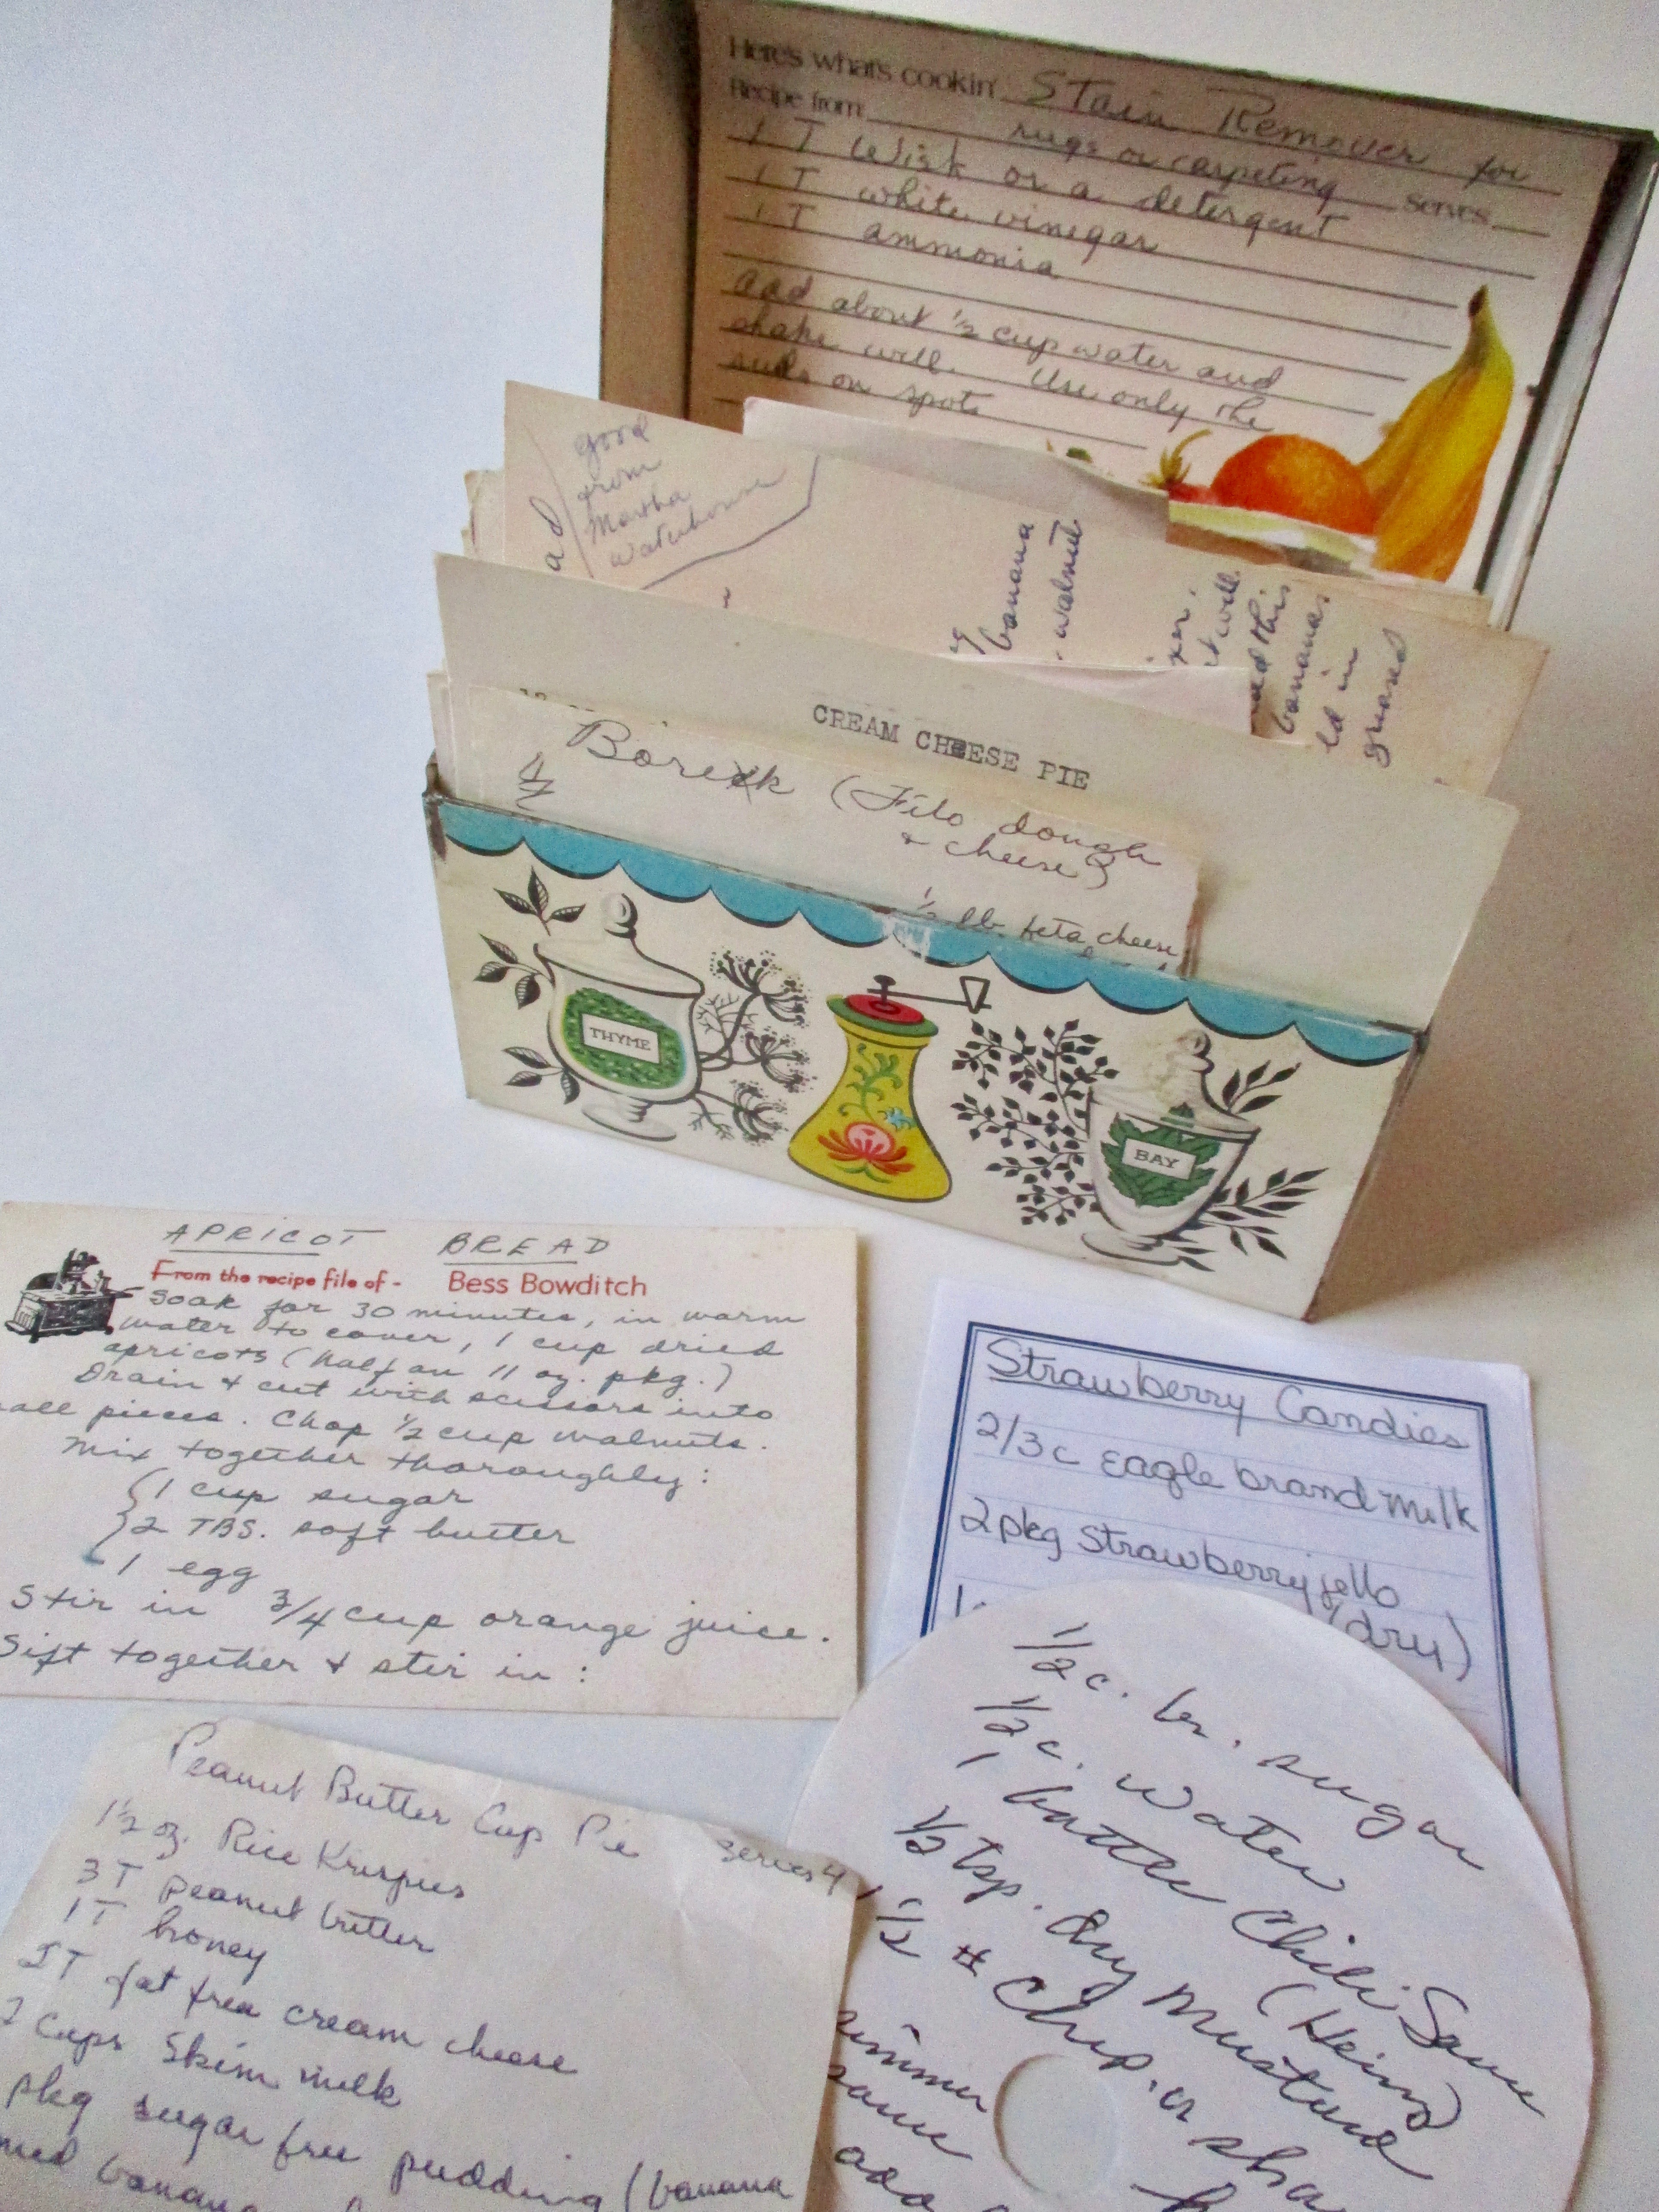 Here's what's cookin' Stain Remover for
Recipe from rugs or carpeting Serves
1 T Wisk or a detergent
1 T white vinegar
1 T ammonia
add about ½ cup water and
shake well. Use only the
suds on spots
good
from
Martha
Waterhouse
ad
banana
walnut
it will
add this
bananas
ld in
greased
CREAM CHEESE PIE
Borek (Filo dough
+ cheese)
½ lb. feta cheese
THYME
BAY
APRICOT BREAD
From the recipe file of - Bess Bowditch
Soak for 30 minutes, in warm
water to cover, 1 cup dried
apricots (half an 11 oz. pkg.)
Drain + cut with scissors into
all pieces. Chop ½ cup walnuts.
Mix together thoroughly:
1 cup sugar
2 TBS. soft butter
1 egg
Stir in 3/4 cup orange juice.
Sift together + stir in:
Strawberry Candies
2/3 c Eagle brand Milk
2 pkg Strawberry jello
(dry)
Peanut Butter Cup Pie
serves 4
1½ oz. Rice Krispies
3 T peanut butter
1 T honey
2T fat free cream cheese
2 cups skim milk
pkg sugar free pudding (banana
banana
1/2 c. br. sugar
1/2 c. water
1 bottle Chili Sauce
(Heinz)
1/2 tsp. dry mustard
1 1/2 # chip. or sha
simmer
sauce
add